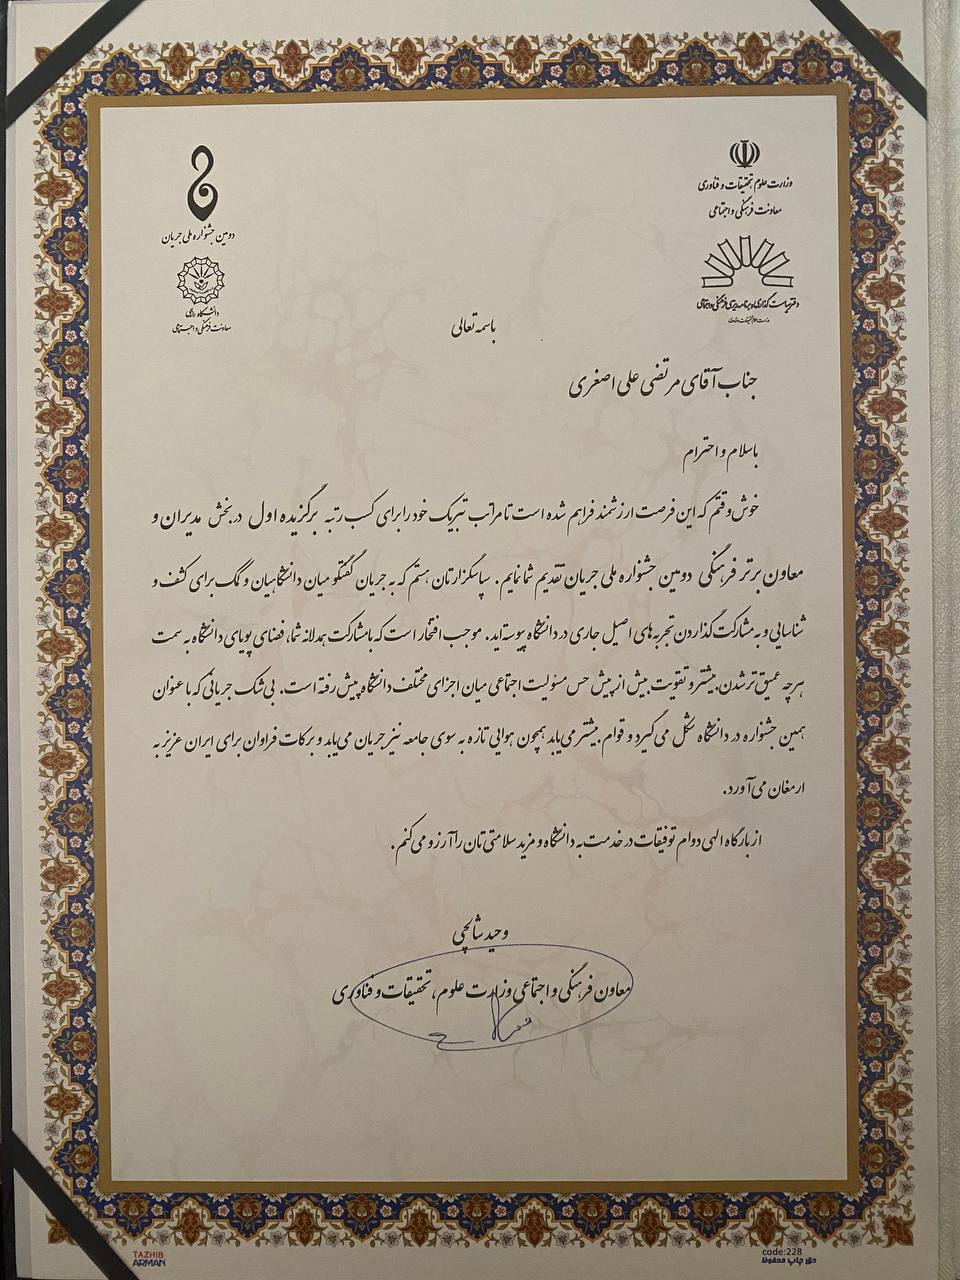 وزارت علوم تحقیقات و فناوری
معاونت فرهنگی و اجتماعی
دفتر سیاست گذاری و برنامه ریزی فرهنگی و اجتماعی
دومین جشنواره ملی جریان
دانشگاه رازی
معاونت فرهنگی و اجتماعی
باسمه تعالی
جناب آقای مرتضی علی اصغری
باسلام و احترام
خوش وقتم که این فرصت ارزشمند فراهم شده است تا مراتب تبریک خود را برای کسب رتبه برگزیده اول در بخش مدیران و
معاون برتر فرهنگی دومین جشنواره ملی جریان تقدیم شما نمایم. سپاسگزارتان هستم که به جریان گفتگو میان دانشگاهیان و کمک برای کشف و
شناسایی و به مشارکت گذاردن تجربه های اصیل جاری در دانشگاه پیوسته اید. موجب افتخار است که با مشارکت همدلانه شما، فضای پویای دانشگاه به سمت
هرچه عمیق تر شدن بیشتر و تقویت بیش از پیش حس مسئولیت اجتماعی میان اجزای مختلف دانشگاه پیش رفته است. بی شک جریانی که با عنوان
همین جشنواره در دانشگاه شکل می گیرد و قوام بیشتر می یابد همچون هوایی تازه به سوی جامعه نیز جریان می یابد و برکات فراوان برای ایران عزیز به
ارمغان می آورد.
از بارگاه الهی دوام توفیقات در خدمت به دانشگاه و مزید سلامتی تان را آرزو می کنم.
وحید شالچی
معاون فرهنگی و اجتماعی وزارت علوم، تحقیقات و فناوری
TAZHIB
ARMAN
code:228
حق چاپ محفوظ